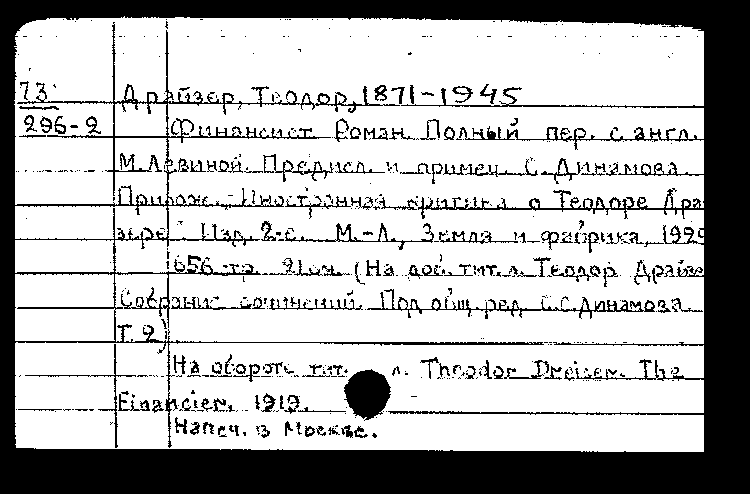 73
296-2
Драйзер, Теодор, 1871-1945
Финансист. Роман. Полный пер. с англ.
М. Левиной. Предисл. и примеч. С. Динамова.
Прилож.: "Иностранная критика о Теодоре Драй
зере". Изд. 2-е. М.-Л., Земля и фабрика, 1929
656 стр. 21 см. (На доб. тит. л. Теодор Драйзе
Собрание сочинений. Под общ. ред. С.С. Динамова.
Т. 2)
На обороте тит. л. Theodor Dreiser. The
Financier. 1919.
Напеч. в Москве.